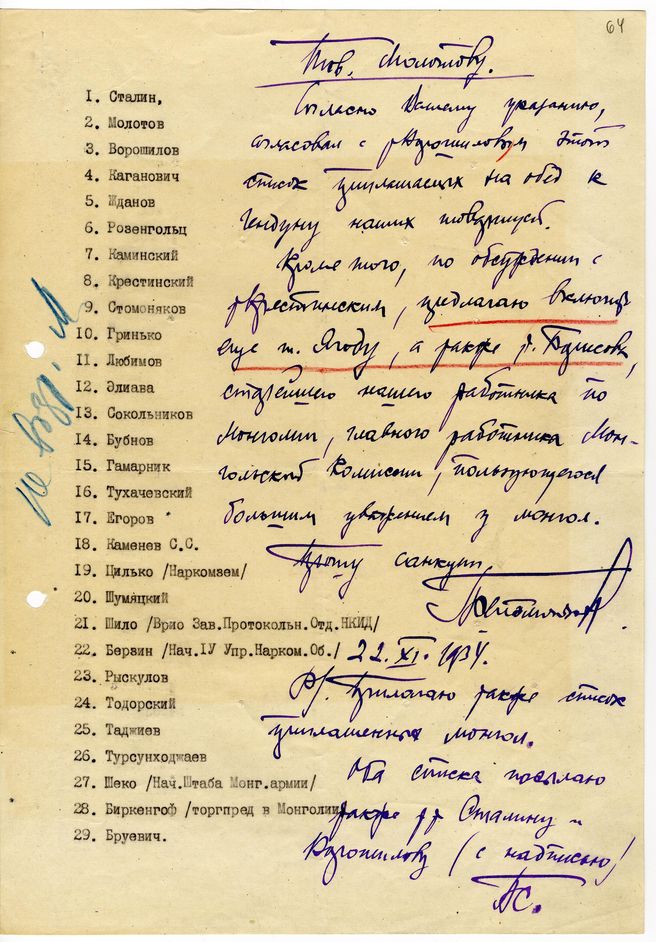 64
1. Сталин,
2. Молотов
3. Ворошилов
4. Каганович
5. Жданов
6. Розенгольц
7. Каминский
8. Крестинский
9. Стомоняков
10. Гринько
11. Любимов
12. Элиава
13. Сокольников
14. Бубнов
15. Гамарник
16. Тухачевский
17. Егоров
18. Каменев С.С.
19. Цилько /Наркомзем/
20. Шумяцкий
21. Шило /Врио Зав.Протокольн.Отд.НКИД/
22. Берзин /Нач.IУ Упр.Нарком.Об./
23. Рыскулов
24. Тодорский
25. Таджиев
26. Турсунходжаев
27. Шеко /Нач.Штаба Монг.армии/
28. Биркенгоф /торгпред в Монголии
29. Бруевич.
Тов. Молотову.
Согласно Вашему указанию,
согласовал с Ворошиловым этот
список приглашаемых на обед к
Гендуну наших товарищей.
Кроме того, по обсуждении с
Крестинским, предлагаю включить
еще т. Ягоду, а также т. Борисова,
старейшего нашего работника по
Монголии, главного работника Мон-
гольской Комиссии, пользующегося
большим уважением у монгол.
Прошу санкции.
22.XI.1934.
P/S. Прилагаю также список
приглашенных монгол.
Оба списка посылаю
также тт Сталину и
Ворошилову (с надписью)
БС.
не возр. М